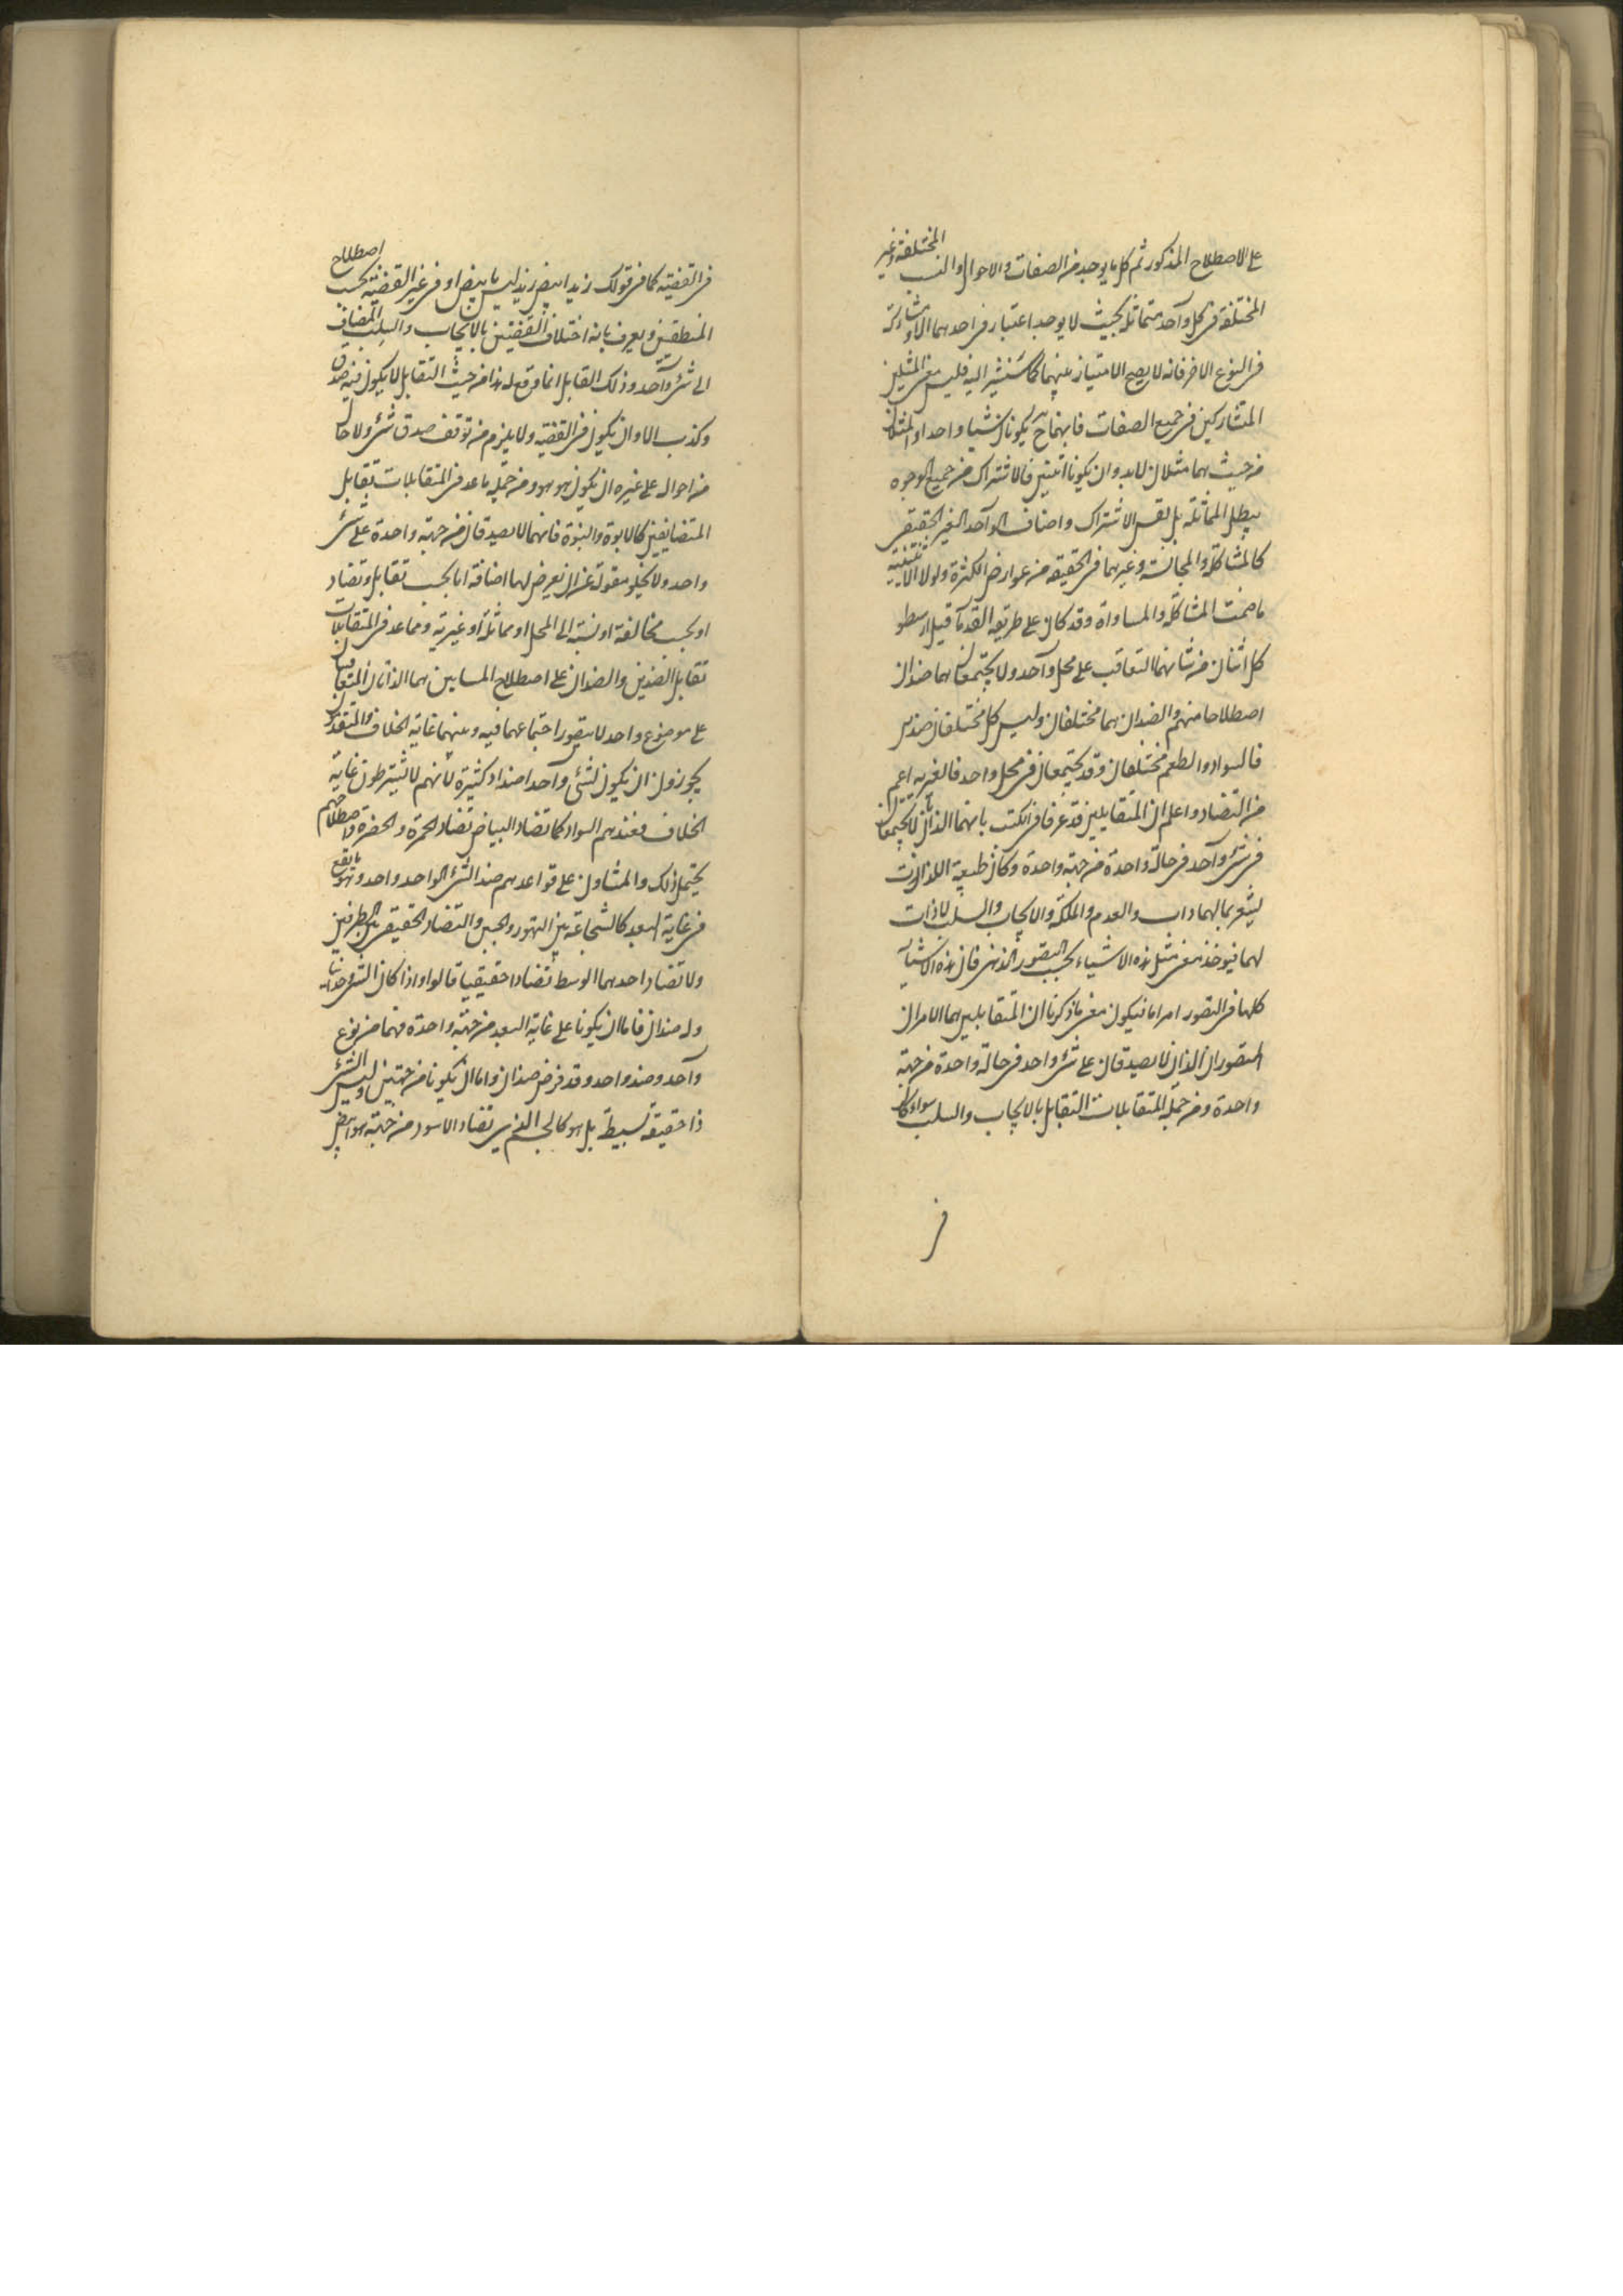 على الاصطلاح المذكور ثم كل ما يوجد من الصفات والاحوال والنسب المختلفة وغير
المختلفة في كل واحد متماثلة بحيث لا يوجد اعتبار في احدهما الا و مشاركة
في النوع الاخر فانه لا يصح الامتياز بينهما كما سنشير اليه فليس معنى المثلين
المتشاركين في جميع الصفات فانهما ح يكونان شيا واحدا والمثلان
من حيث هما مثلان لابد وان يكونا اثنين فالاشتراك من جميع الوجوه
يبطل المماثلة بل نفس الاشتراك واصناف الواحد الغير الحقيقي
كالمشاكلة والمجانسة وغيرهما في الحقيقه من عوارض الكثرة ولولا الاثنينية
ما صحت المشاكلة والمساواة وقد كان على طريقه القدمآ قبل ارسطو
كل اثنان من شانهما التعاقب على محل وآحد ولا يجتمعان هما ضدان
اصطلاحا منهم والضدان هما مختلفان وليس كل مختلفان ضدين
فالسواد والطعم مختلفان وقد يجتمعان في محل واحد فالغيريه اعم
من التضاد واعلم ان المتقابلين قد عرفا في الكتب بانهما اللذان لا يجتمعان
في شئ وآحد في حالة واحدة من جهة واحدة وكان طبيعة اللذان
يشعر بما لهما ذات والعدم والملكة والايجاب والسلب لا ذات
لهما فيوخذ معنى مثل هذه الاشياء بحسب التصور الذهنى فان هذه الاشيآ
كلها في التصور امرا ما فيكون معنى ما ذكرنا ان المتقابلين هما الامران
المتصوران اللذان لا يصدقان على شئ واحد في حالة واحدة من جهة
واحدة ومن جمله المتقابلات التقابل بالايجاب والسلب سواء كان
في
في القضيه كما في قولك زيد ابيض زيد ليس بابيض او في غير القضيه بحسب اصطلاح
المنطقين ويعرف بانه اختلاف القضيتين بالايجاب والسلب المضاف
الى شئ وآحد وذلك التقابل انما وقع له هذا من حيث التقابل لا يكون فيه صدق
وكذب الا وان يكون في القضيه ولا يلزم من توقف صدق شئ ولا حال
من احواله على غيره ان يكون هو هو ومن جمله ما عد في المتقابلات تقابل
المتضايفين كالابوة والبنوة فانهما لا يصدقان من جهة واحدة على شئ
واحد ولا يخلو مقولة عن ان يعرض لها اضافة اما بحسب تقابل وتضاد
او بحسب مخالفة او نسبة الى المحل او مماثلة او غيرية ومما عد في المتقابلات
تقابل الضدين والضدان على اصطلاح المشايين هما الذاتان المتعاقبان
على موضوع واحد لا يتصور اجتماعهما فيه وبينهما غاية الخلاف والمتقدمون
يجوزون ان يكون لشئ واحد اضداد كثيرة لانهم لا يشترطون غاية
الخلاف فعندهم السواد كما تضاد البياض تضاد الحمرة والخضرة واصطلاحهم
يحتمل ذلك والمشاون على قواعدهم ضد الشئ الواحد واحد وهو ما يقع
في غاية البعد كالشجاعة بين التهور والجبن والتضاد الحقيقى بين الطرفين
ولا تضاد احدهما الوسط تضادا حقيقيا قالوا واذا كان الشئ وحدانيا
وله ضدان فاما ان يكونا على غاية البعد من جهة واحدة فهما من نوع
وآحد وضد واحد وقد فرض ضدان واما ان يكونا من جهتين وليس الشئ
ذا حقيقه بسيطة بل هو كالجسم الذى تضاد الاسود من جهة هو ابيض